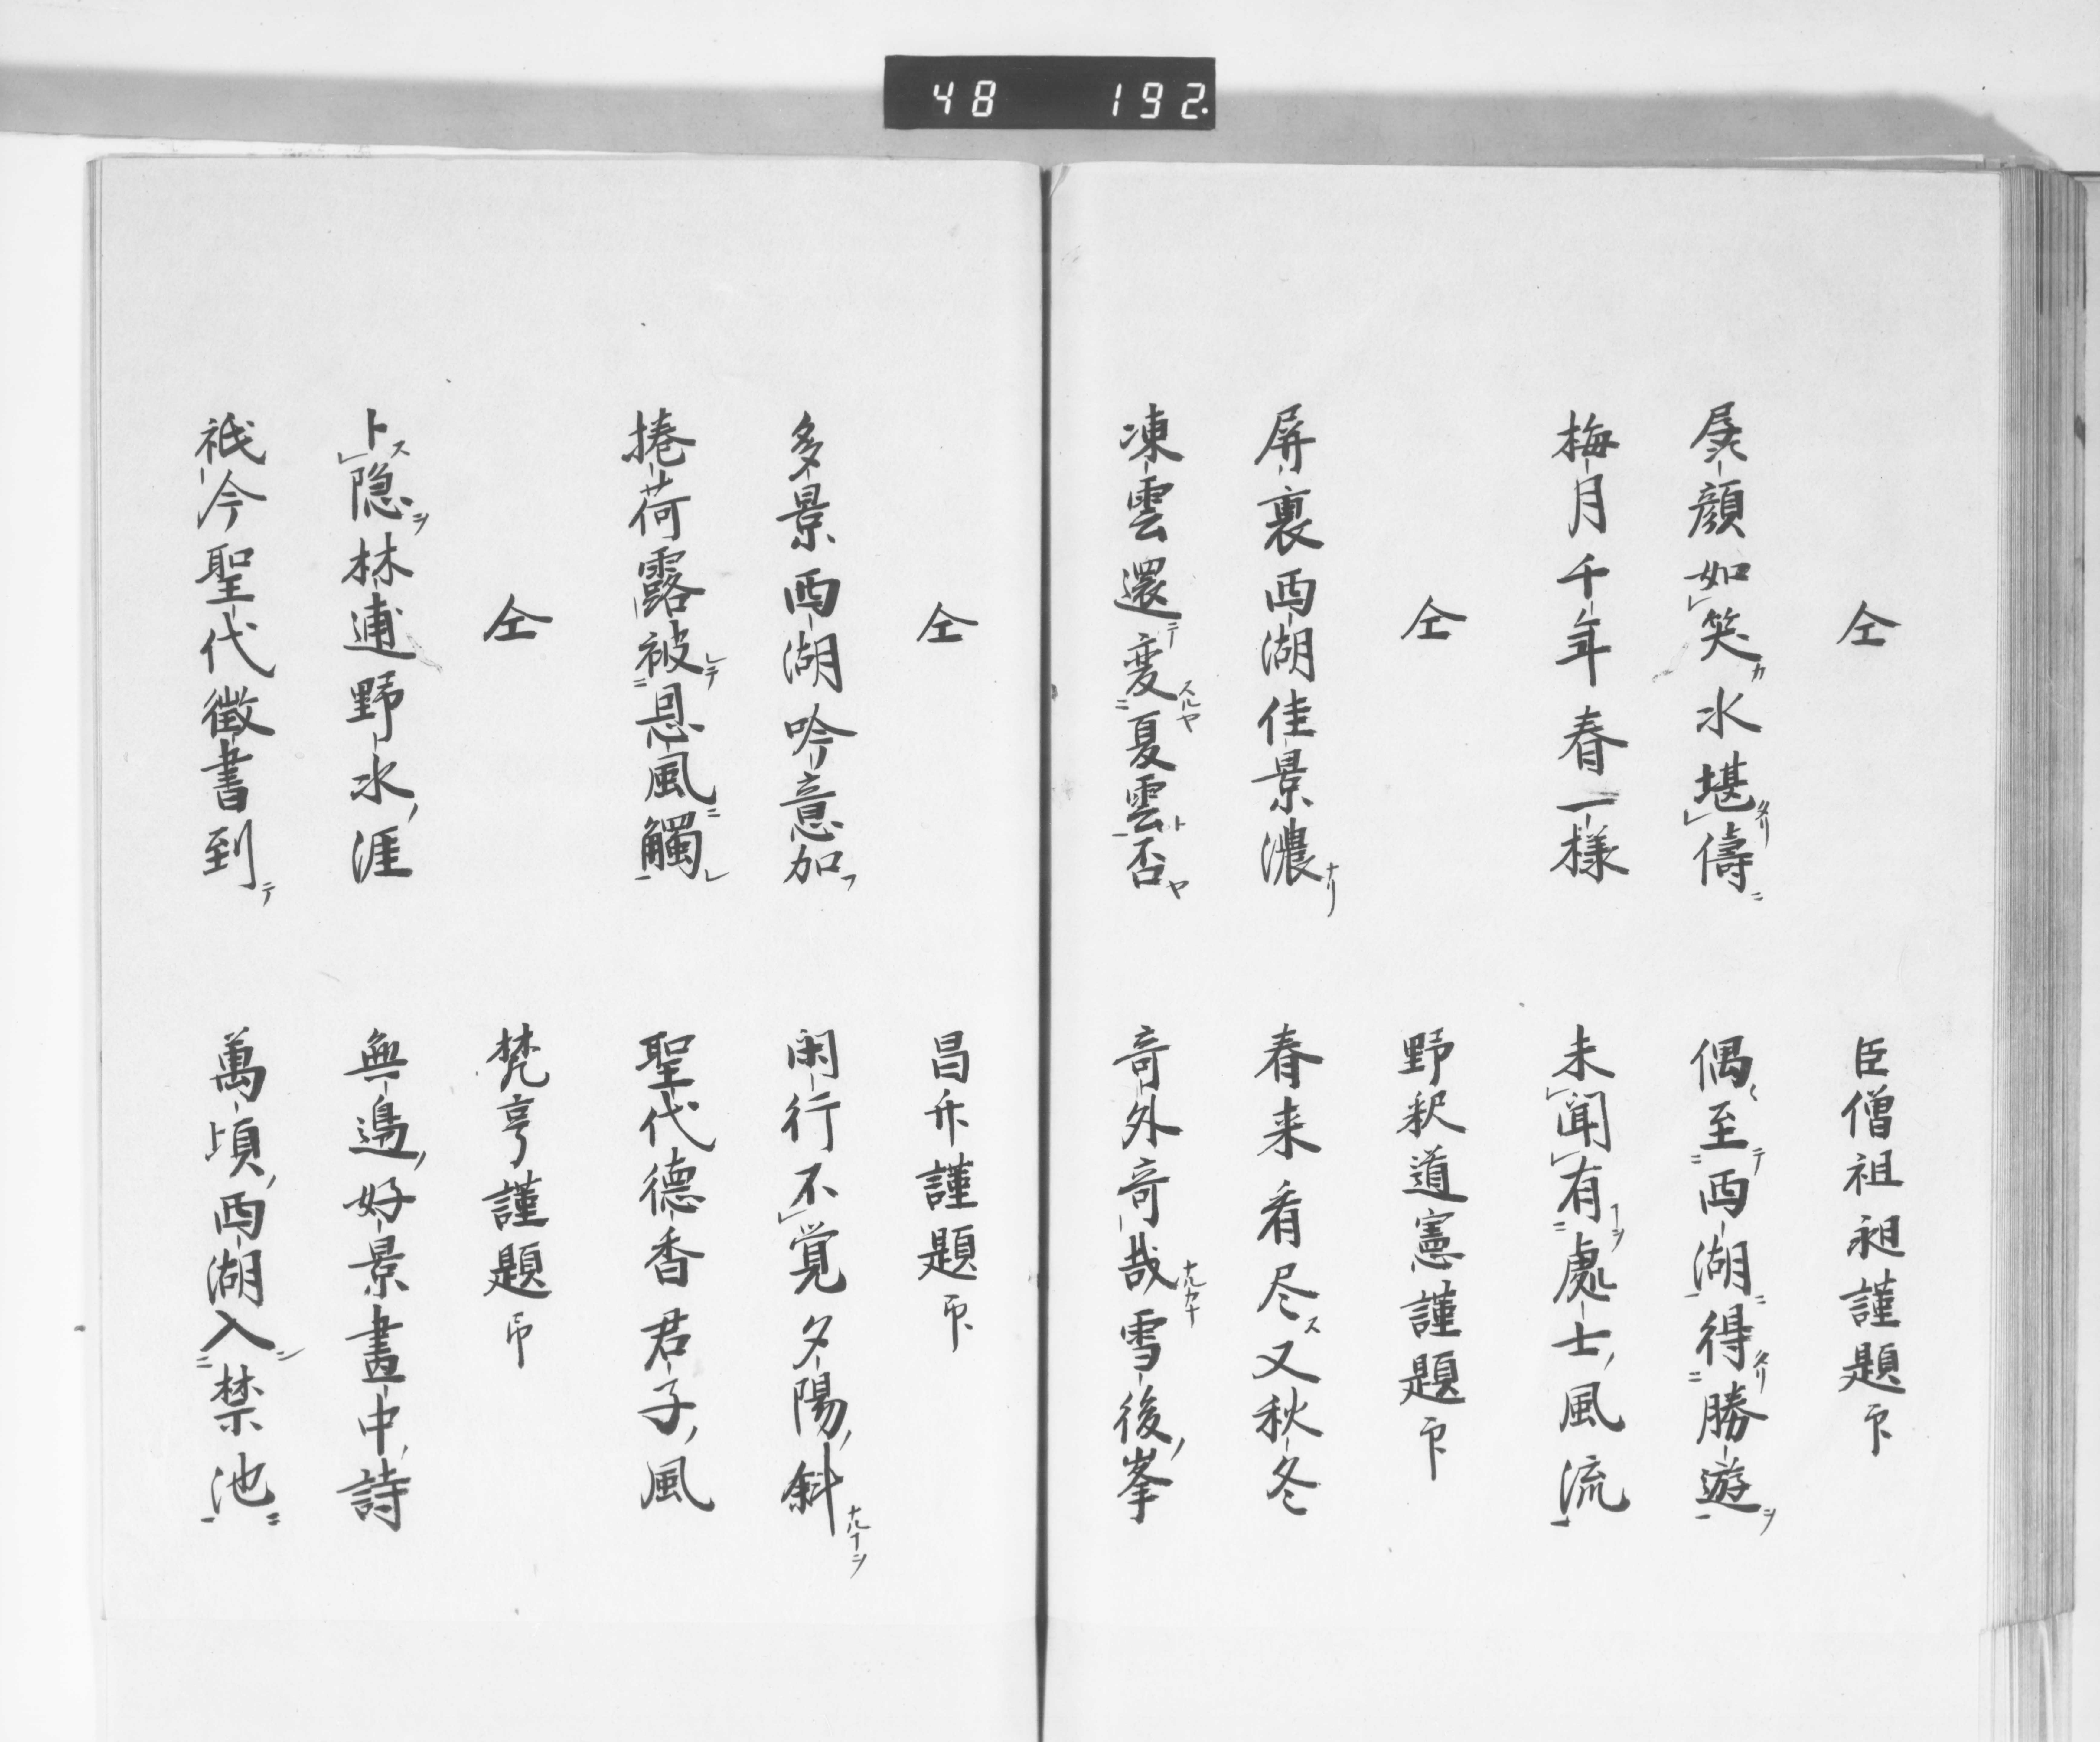 48 192.
仝 臣僧祖昶謹題 印
孱顔如笑水堪儔 偶至西湖得勝遊
梅月千年春一様 未聞有處士風流
仝 野釈道憲謹題 印
屏裏西湖佳景濃 春来看尽又秋冬
凍雲還変夏雲否 奇外奇哉雪後峯
仝 昌升謹題 印
多景西湖吟意加 閑行不覚夕陽斜
捲荷露被恩風觸 聖代德香君子風
仝 梵亨謹題 印
卜隠林逋野水涯 無邉好景畫中詩
祇今聖代徴書到 萬頃西湖入禁池